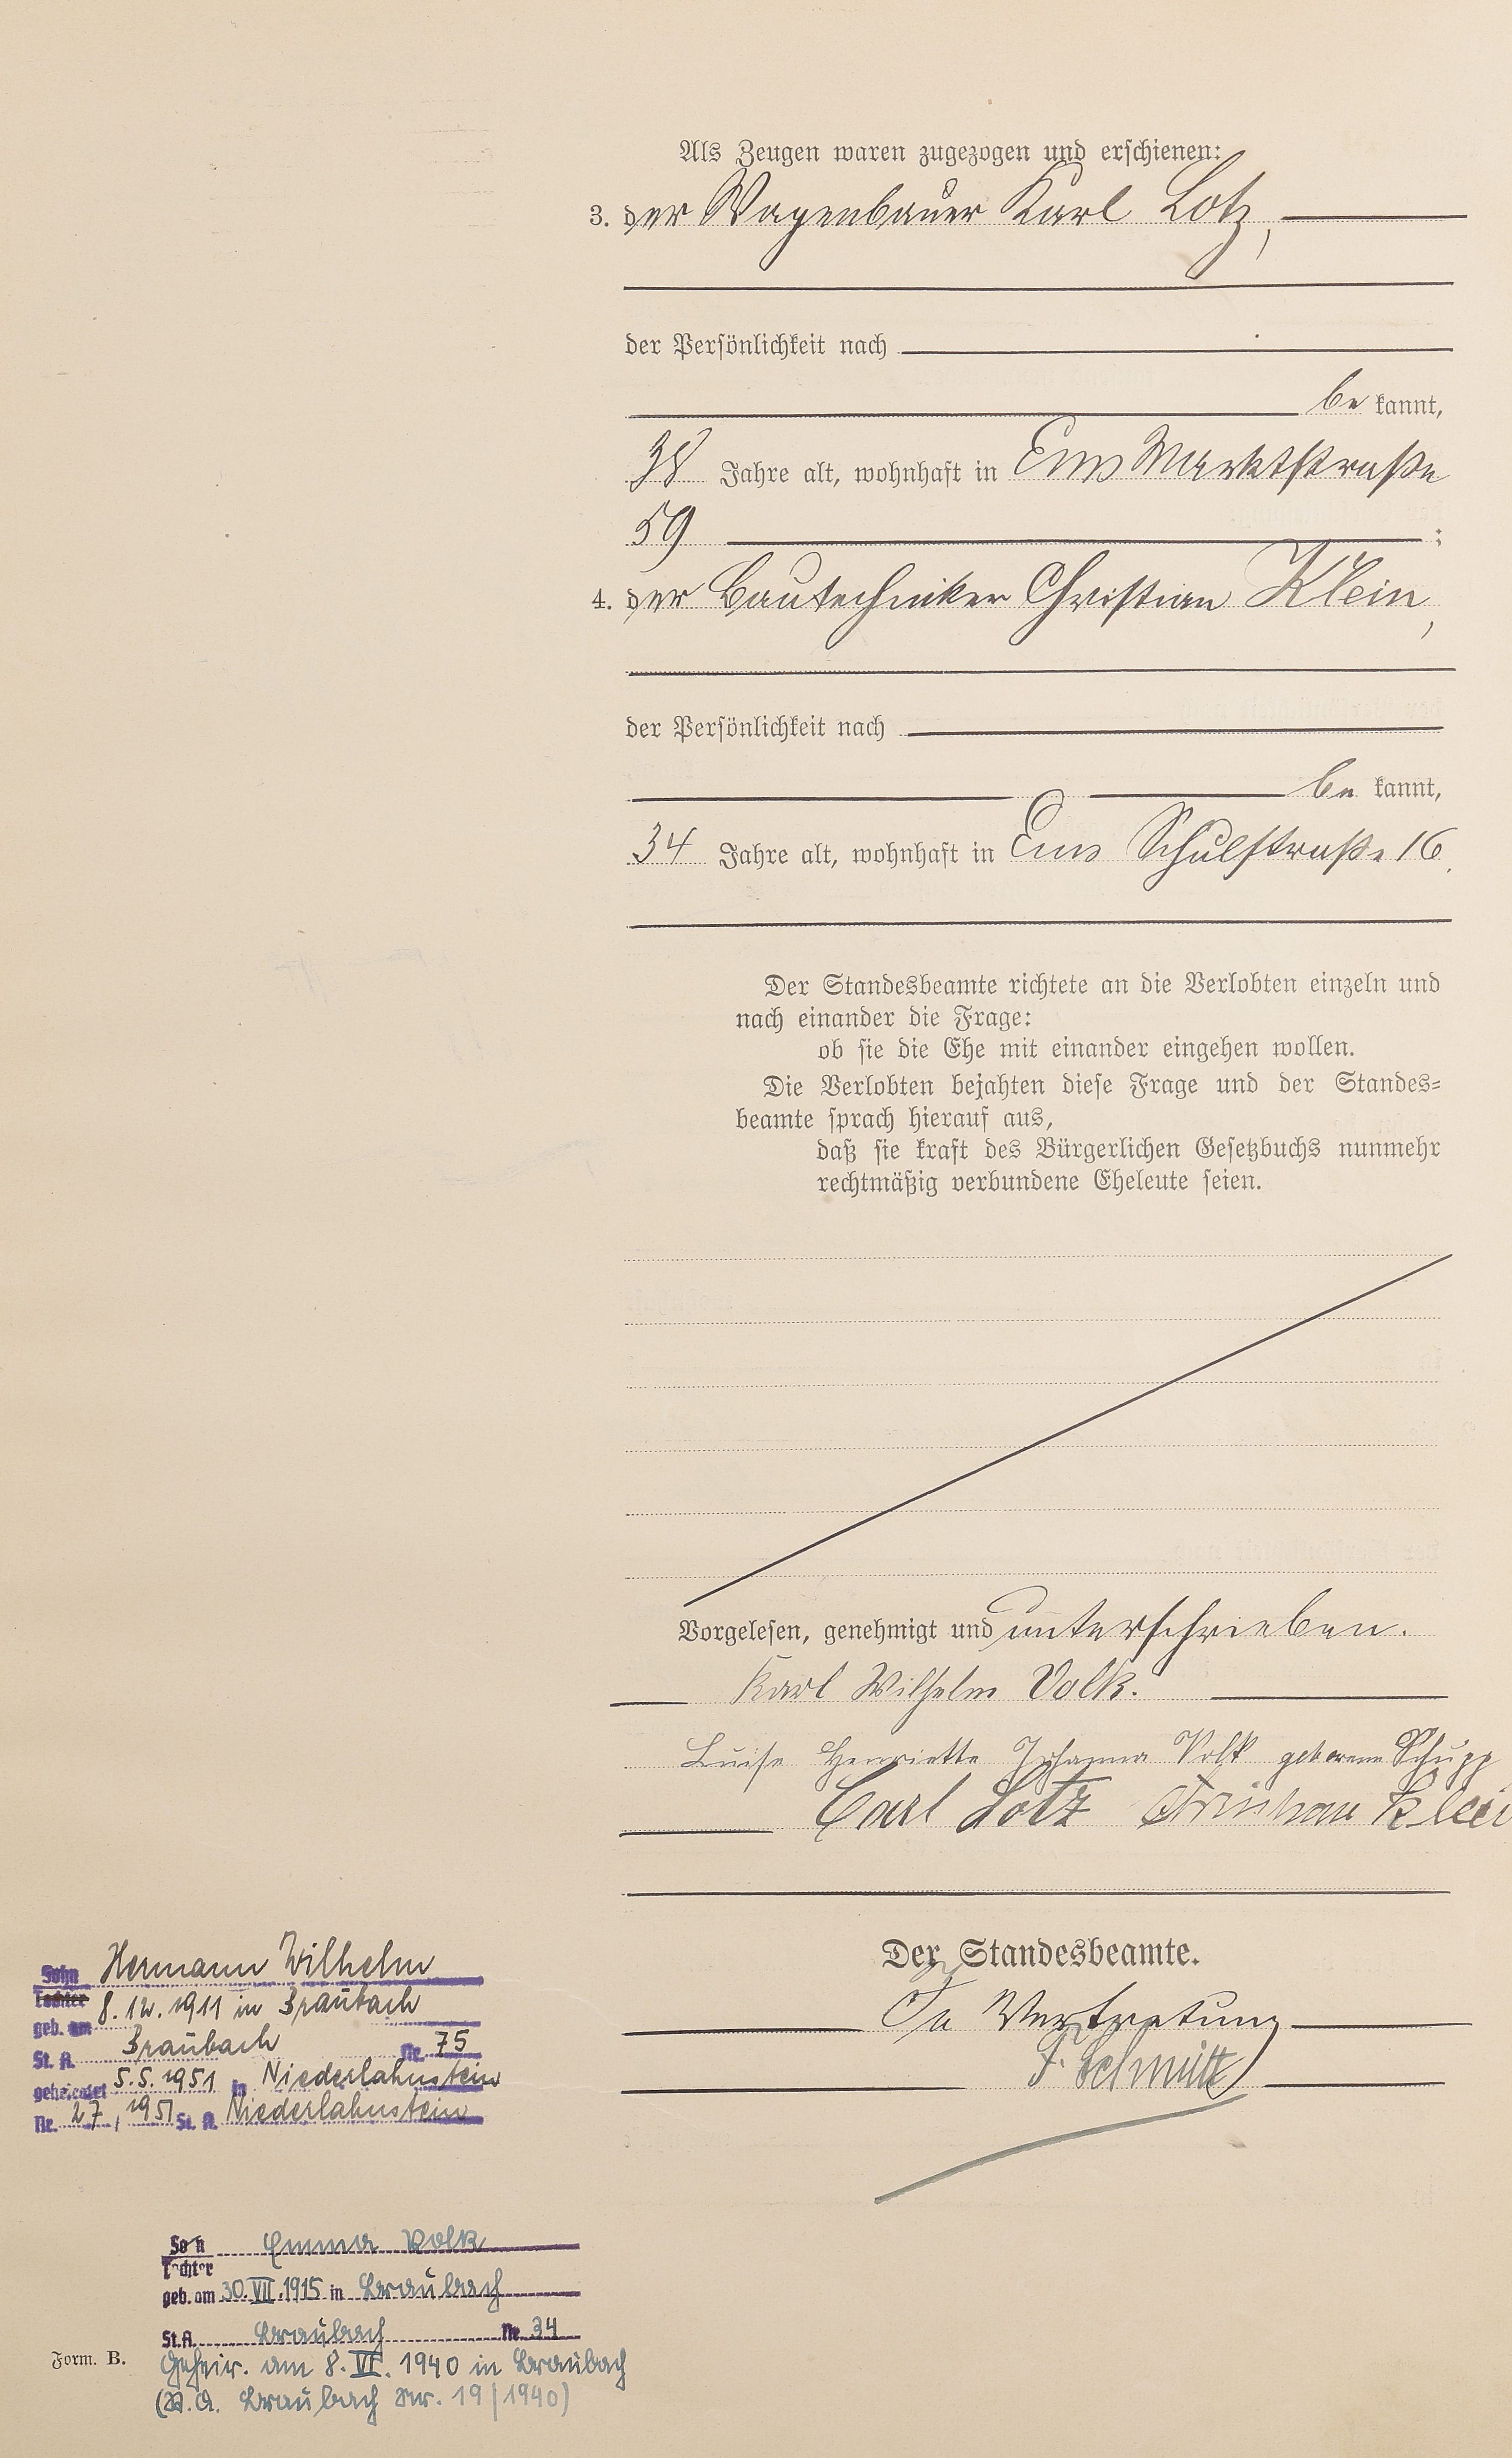 Als Zeugen waren zugezogen und erschienen:
3. der Wagenbauer Karl Lotz,
der Persönlichkeit nach
be kannt,
38 Jahre alt, wohnhaft in Ems Marktstraße
59 ;
4. der Bautechniker Christian Klein,
der Persönlichkeit nach
be kannt,
34 Jahre alt, wohnhaft in Ems Schulstraße 16.
Der Standesbeamte richtete an die Verlobten einzeln und
nach einander die Frage:
ob sie die Ehe mit einander eingehen wollen.
Die Verlobten bejahten diese Frage und der Standes=
beamte sprach hierauf aus,
daß sie kraft des Bürgerlichen Gesetzbuchs nunmehr
rechtmäßig verbundene Eheleute seien.
Vorgelesen, genehmigt und unterschrieben.
Karl Wilhelm Volk.
Luise Henriette Johanna Volk geborene Schupp
Carl Lotz Christian Klein
Der Standesbeamte.
In Vertretung
F. Schmitt
Sohn Hermann Wilhelm
Tochter
geb. am 8.12.1911 in Braubach
St. A. Braubach Nr. 75
geheiratet 5.5.1951 in Niederlahnstein
Nr. 27, 1951 St. A. Niederlahnstein
Sohn Emma Volk
Tochter
geb. am 30.VII.1915 in Braubach
St.A. Braubach Nr. 34
Geheir. am 8.VI.1940 in Braubach
(St.A. Braubach Nr. 19/1940)
Form. B.